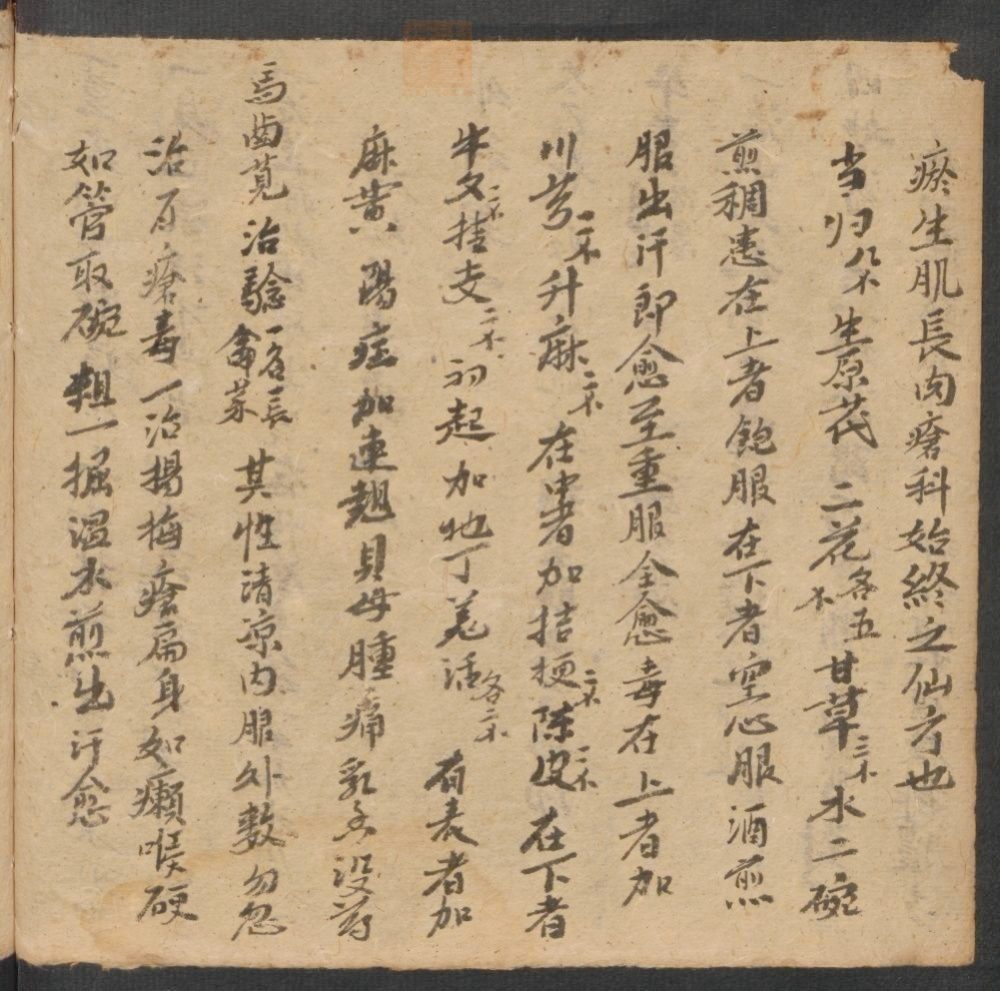 瘀生肌長肉瘡科始終之仙方也
当归八不生原芪二花各五不甘草三不水二碗
煎稠患在上者飽服在下者空心服酒煎
服出汗即愈至重服全愈毒在上者加
川芎一不升麻二不在中者加桔梗二不陈皮二不在下者
牛夕二不桂支二不初起加地丁羌活各二不有表者加
麻黄陽症加連翹貝母腫痛乳香没药
馬齒莧治驗一名長命菜其性清凉内服外敷勿忽
治百瘡毒一治楊梅瘡扁身如癩喉硬
如管取碗粗一掘温水煎出汗愈